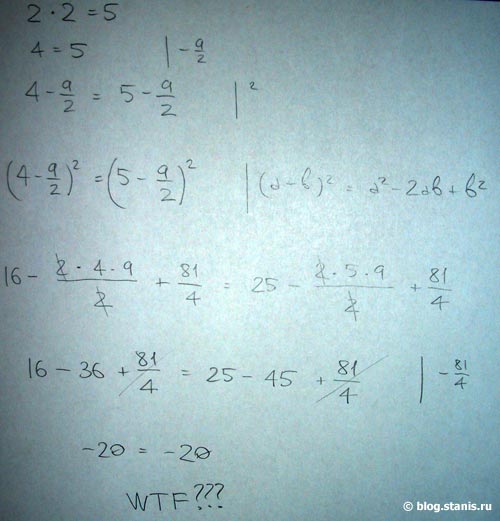 2 · 2 = 5
4 = 5 | - 9/2
4 - 9/2 = 5 - 9/2 | ²
(4 - 9/2)² = (5 - 9/2)² | (a - b)² = a² - 2ab + b²
16 - 2 · 4 · 9/2 + 81/4 = 25 - 2 · 5 · 9/2 + 81/4
16 - 36 + 81/4 = 25 - 45 + 81/4 | - 81/4
-20 = -20
WTF???
© blog.stanis.ru